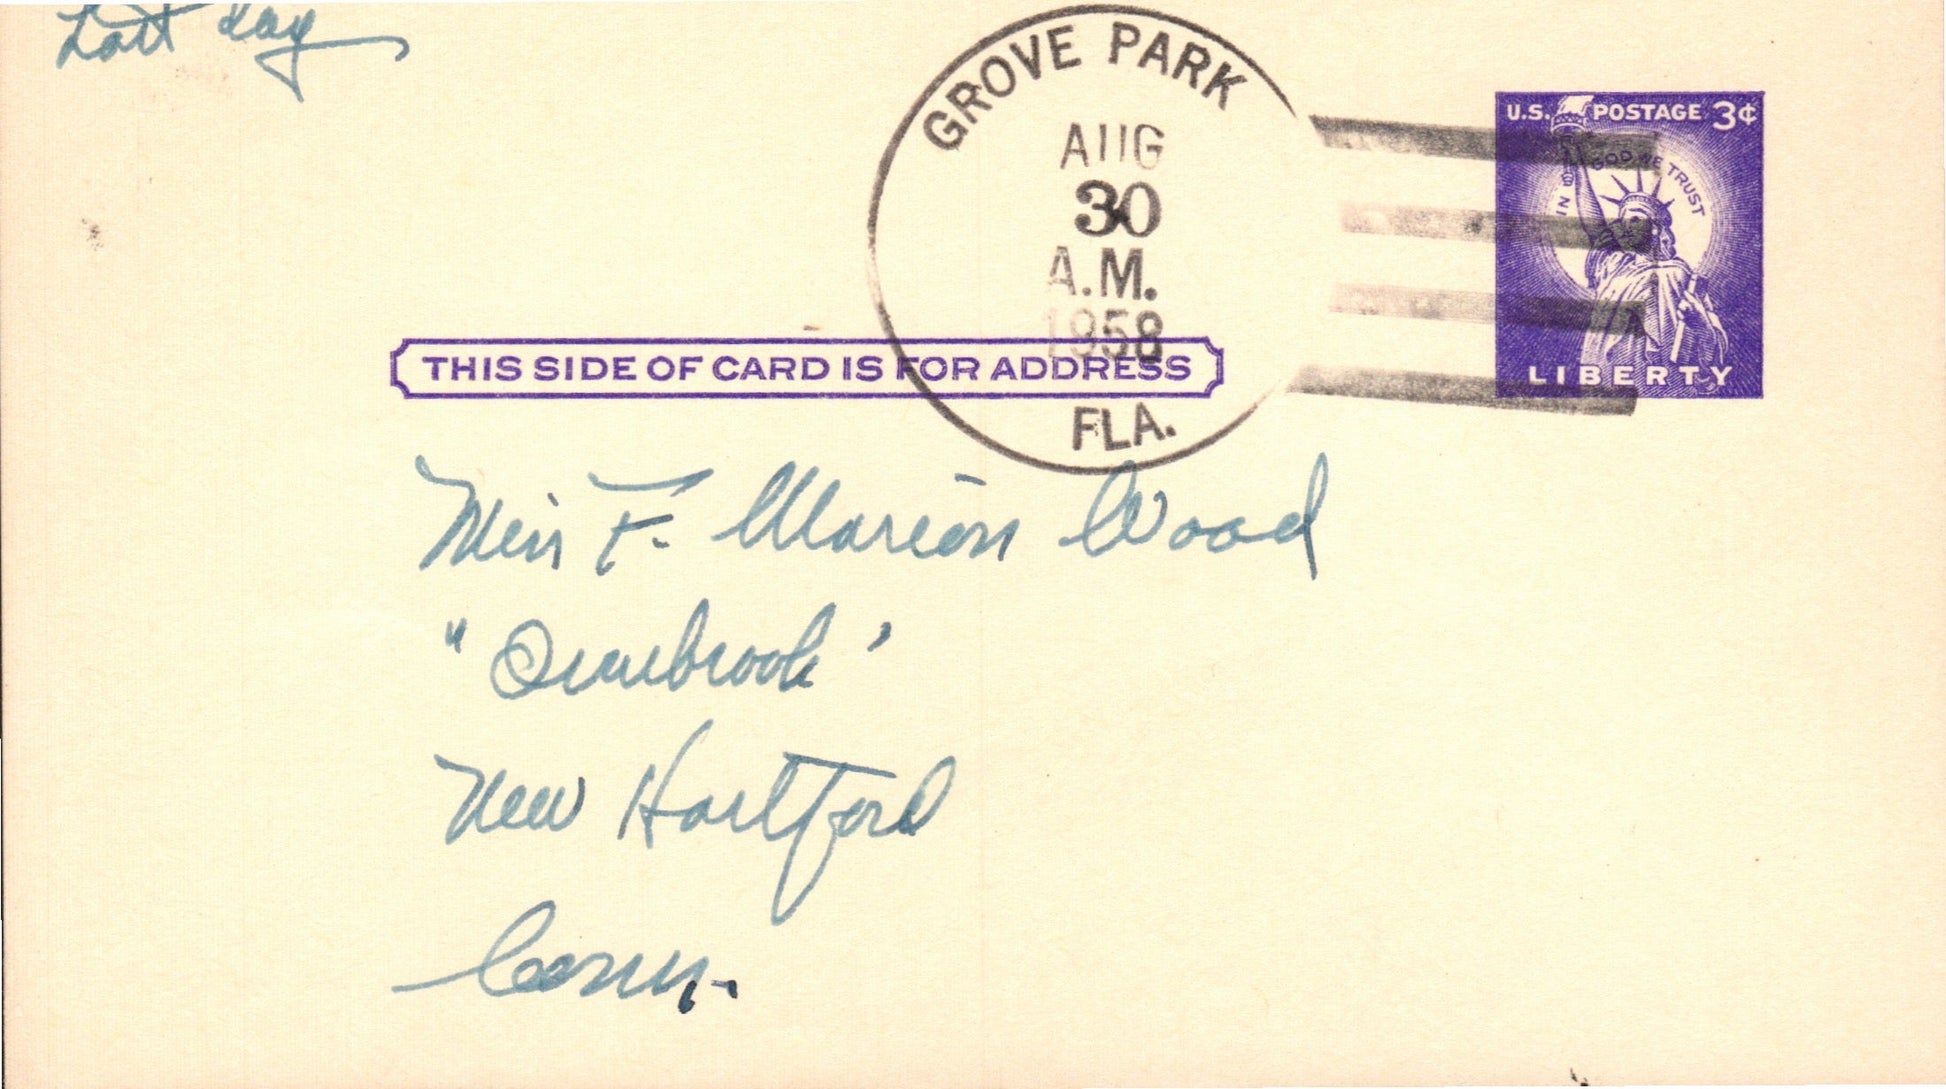 Last day
GROVE PARK
AUG
30
A.M.
1958
FLA.
U.S. POSTAGE 3¢
IN GOD WE TRUST
LIBERTY
THIS SIDE OF CARD IS FOR ADDRESS
Miss F. Marion Wood
New Hartford
Conn.